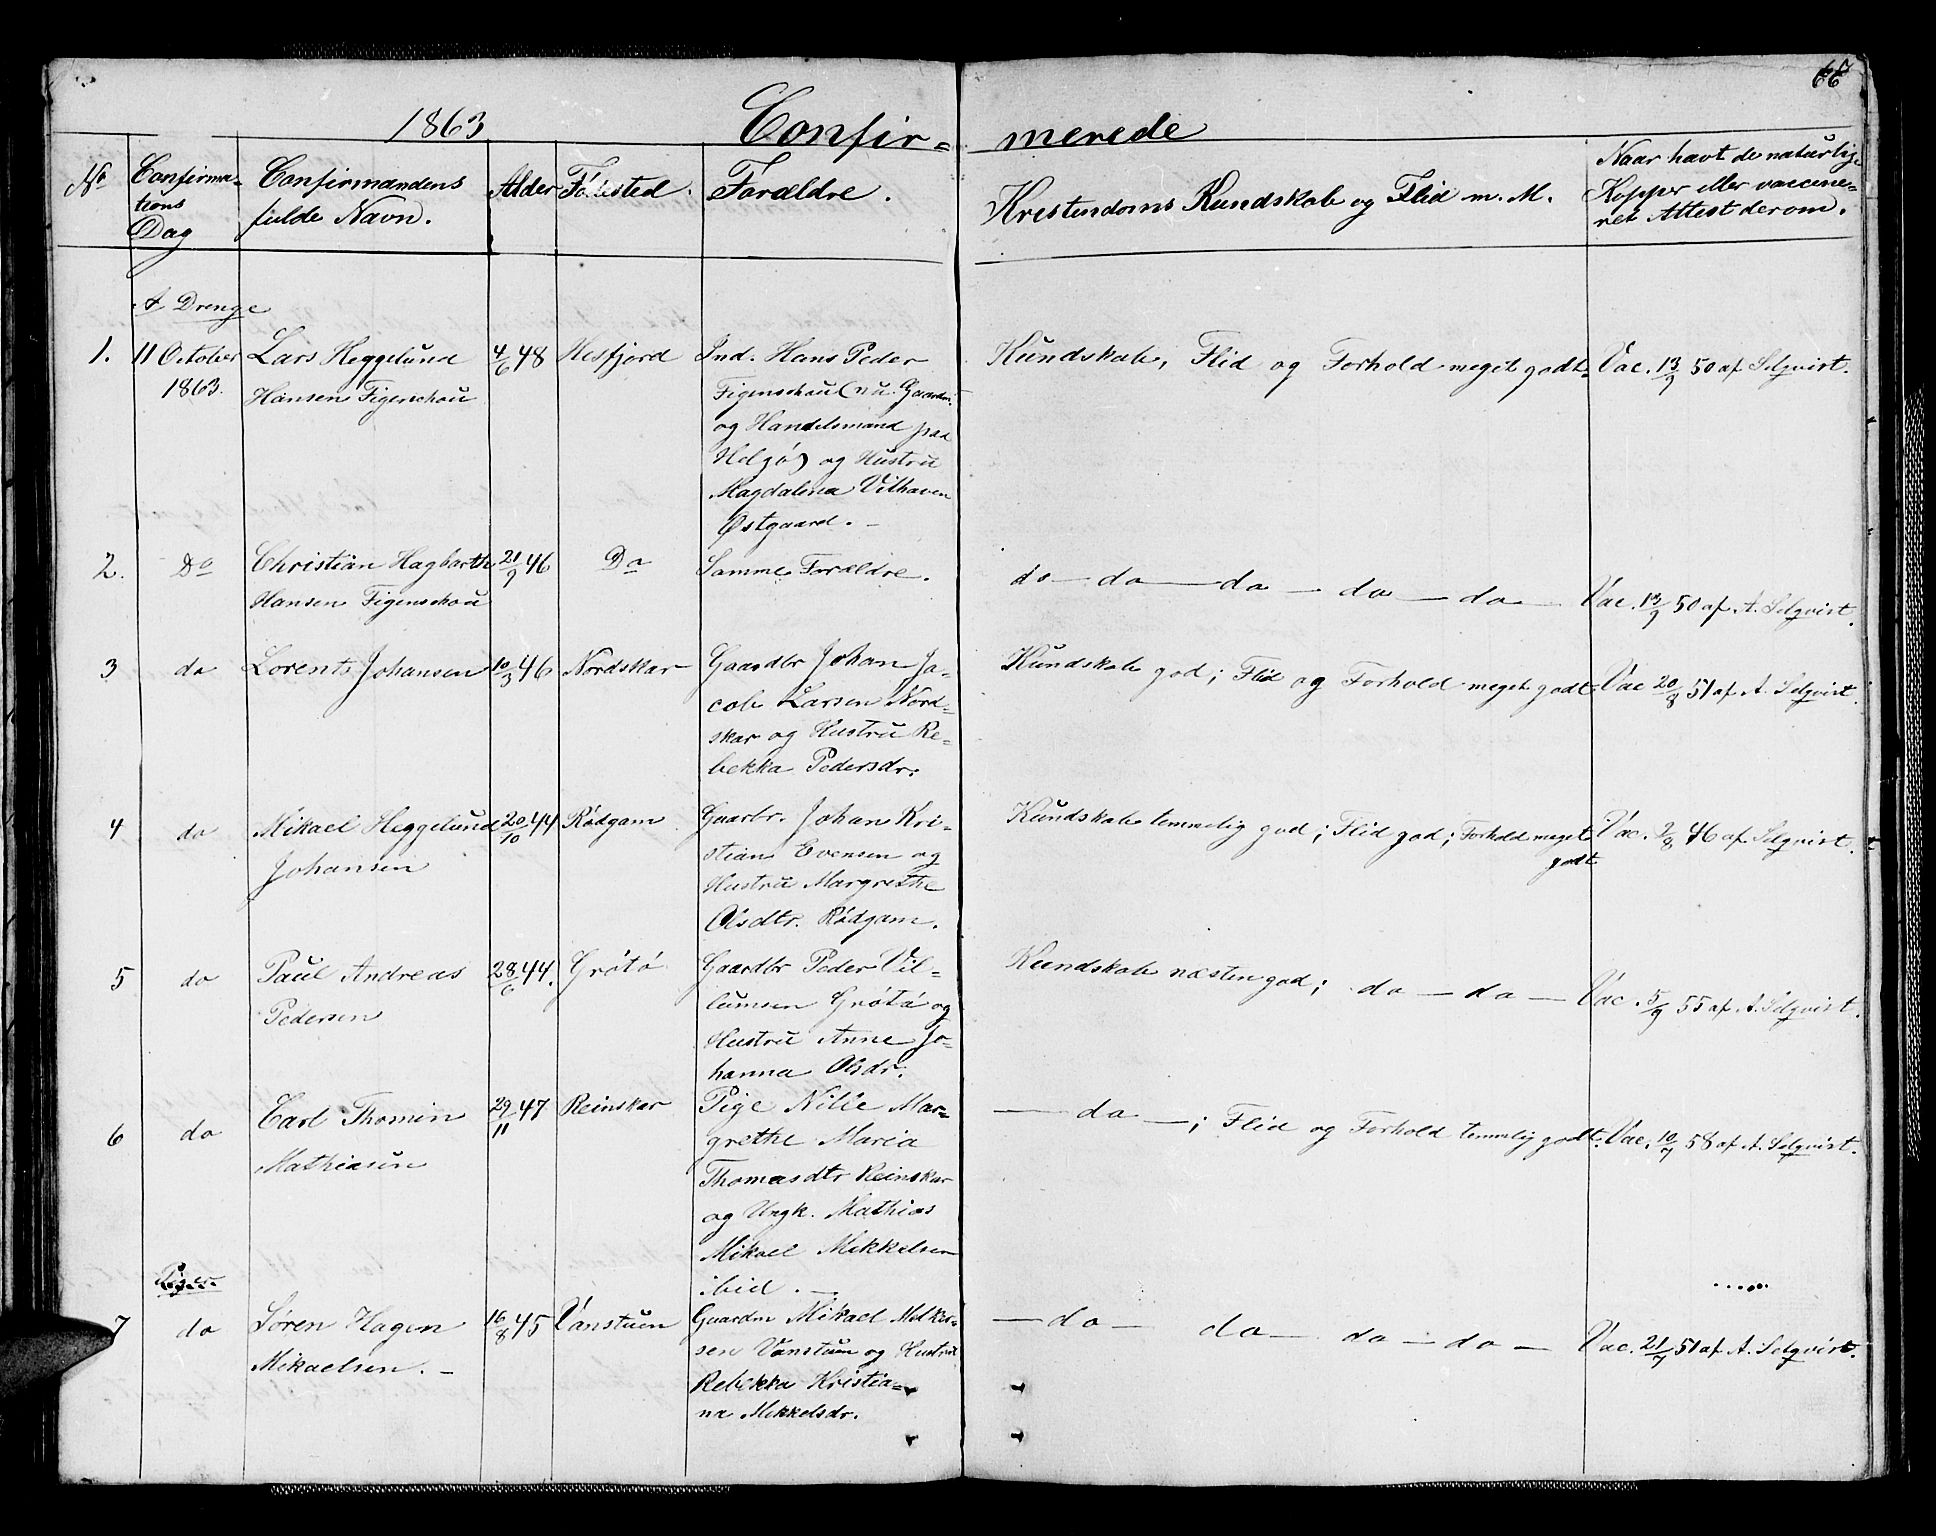 66
1863 Confir= merede
No Confirma- tions Dag | Confirmandens fulde Navn. | Alder | Födested. | Forældre. | Kristendoms Kundskab og Flid m. M. | Naar havt de naturlig- Kopper eller vaccene= ret Attest derom.
A Drenge
1. 11 October 1863. | Lars Heggelund Hansen Figenschou | 4/6 48 | Hesfjord | Ind. Hans Peder
Figenschou (nu Gaardm.
og Handelsmand paa
Helgö) og Hustru
Magdalena Vilhaven
Østgaard. – | Kundskab, Flid og Forhold meget godt. | Vac. 13/9 50 af Selqvist.
2. Do | Christian Hagbarth Hansen Figenschou | 21/9 46 | Do | Samme Forældre. | do – do – do – do – do – | Vac. 13/9 50 af A. Selqvist.
3 do | Lorents Johansen | 10/3 46 | Nordskar | Gaardbr Johan Ja-
cob Larsen Nord=
skar og Hustru Re-
bekka Pedersdr. | Kundskab god; Flid og Forhold meget godt | Vac 20/8 51 af A. Selqvist.
4 do | Mikael Heggelund Johansen | 20/10 44 | Rödgam | Gaarbr. Johan Kri-
stian Evensen og
Hustru Margrethe
Olsdtr. Rödgam. | Kundskab temmelig god; Flid god; Forhold meget godt | Vac. 2/8 46 af Selqvist.
5 do | Paul Andreas Pedersen | 28/6 44. | Grötö | Gaardbr Peder Vil=
lumsen Grötö og
Hustru Anne Jo-
hanna Olsdr. | Kundskab næsten god; do – do – | Vac. 5/9 55 af A. Selqvist.
6 do | Carl Thomin Mathiasen | 29/11 47 | Reinskar | Pige Nille Mar=
grethe Maria
Thomasdtr Reinskar
og Ungk. Mathias
Mikael Mikkelsen
ibid. – | – do –; Flid og Forhold temmelig godt. | Vac. 10/7 58 af A. Selqvist.
Piger.
7 do | Sören Hagen Mikaelsen. – | 16/8 45 | Vanstuen | Gaardm Mikael Mikkel-
sen Vanstuen og Hustru
Rebekka Kristia=
na Mikkelsdr. | – do – do – do – do – | Vac. 21/7 51 af A. Selqvist.